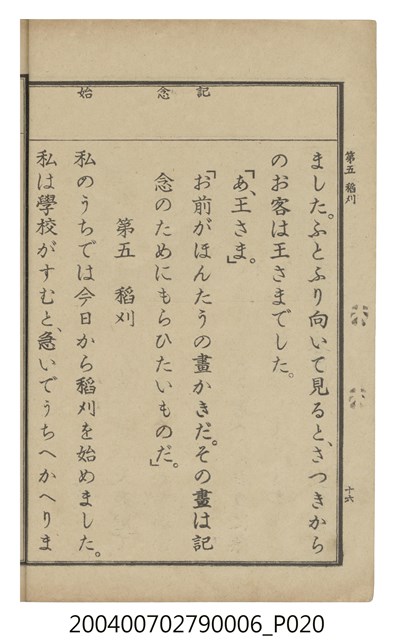 第五 稻刈
十六
記
念
始
ました。ふとふり向いて見ると、さつきから
のお客は王さまでした。
「あ、王さま。」
「お前がほんたうの畫かきだ。その畫は記
念のためにもらひたいものだ。」
第五 稻刈
私のうちでは今日から稻刈を始めました。
私は學校がすむと、急いでうちへかへりま
200400702790006_P020